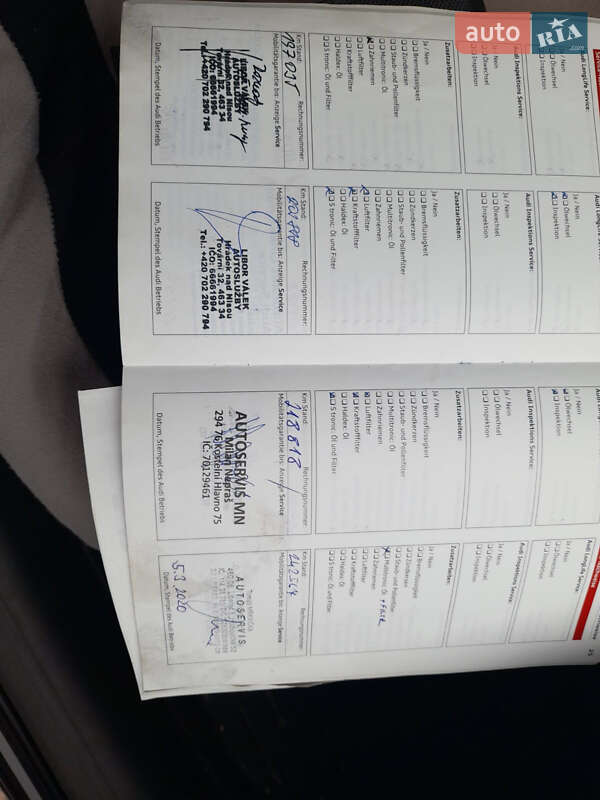 auto RIA
Audi LongLife Service:
Ölwechsel
Inspektion
Audi Inspektions Service:
Ja / Nein
Ölwechsel
Inspektion
Zusatzarbeiten:
Ja / Nein
Bremsflüssigkeit
Zündkerzen
Staub- und Pollenfilter
Multitronic: Öl
Zahnriemen
Luftfilter
Kraftstofffilter
Haldex: Öl
S tronic: Öl und Filter
Km Stand:
Rechnungsnummer:
197 035
Mobilitätsgarantie bis: Anzeige Service
LIBOR VALEK
AUTOSLUŽBY
Hrádek nad Nisou
Tovární 32, 463 34
IČO: 66661994
Tel.: +420 702 290 794
Datum, Stempel des Audi Betriebs
Ölwechsel
Inspektion
Audi Inspektions Service:
Ja / Nein
Ölwechsel
Inspektion
Zusatzarbeiten:
Ja / Nein
Bremsflüssigkeit
Zündkerzen
Staub- und Pollenfilter
Multitronic: Öl
Zahnriemen
Luftfilter
Kraftstofffilter
Haldex: Öl
S tronic: Öl und Filter
Km Stand:
Rechnungsnummer:
Mobilitätsgarantie bis: Anzeige Service
LIBOR VALEK
AUTOSLUŽBY
Hrádek nad Nisou
Tovární 32, 463 34
IČO: 66661994
Tel.: +420 702 290 794
Datum, Stempel des Audi Betriebs
Ja / Nein
Ölwechsel
Inspektion
Audi Inspektions Service:
Ja / Nein
Ölwechsel
Inspektion
Zusatzarbeiten:
Ja / Nein
Bremsflüssigkeit
Zündkerzen
Staub- und Pollenfilter
Multitronic: Öl
Zahnriemen
Luftfilter
Kraftstofffilter
Haldex: Öl
S tronic: Öl und Filter
Km Stand:
Rechnungsnummer:
218 818
Mobilitätsgarantie bis: Anzeige Service
AUTOSERVIS MN
Milan Nepraš
294 76 Kostelní Hlavno 75
IČ: 70129461
Datum, Stempel des Audi Betriebs
25
Audi LongLife Service:
Ja / Nein
Ölwechsel
Inspektion
Audi Inspektions Service:
Ja / Nein
Ölwechsel
Inspektion
Zusatzarbeiten:
Ja / Nein
Bremsflüssigkeit
Zündkerzen
Staub- und Pollenfilter
Multitronic: Öl
Zahnriemen
Luftfilter
Kraftstofffilter
Haldex: Öl
S tronic: Öl und Filter
Km Stand:
Rechnungsnummer:
242564
Mobilitätsgarantie bis: Anzeige Service
AUTOSERVIS
5.3.2020
Datum, Stempel des Audi Betriebs